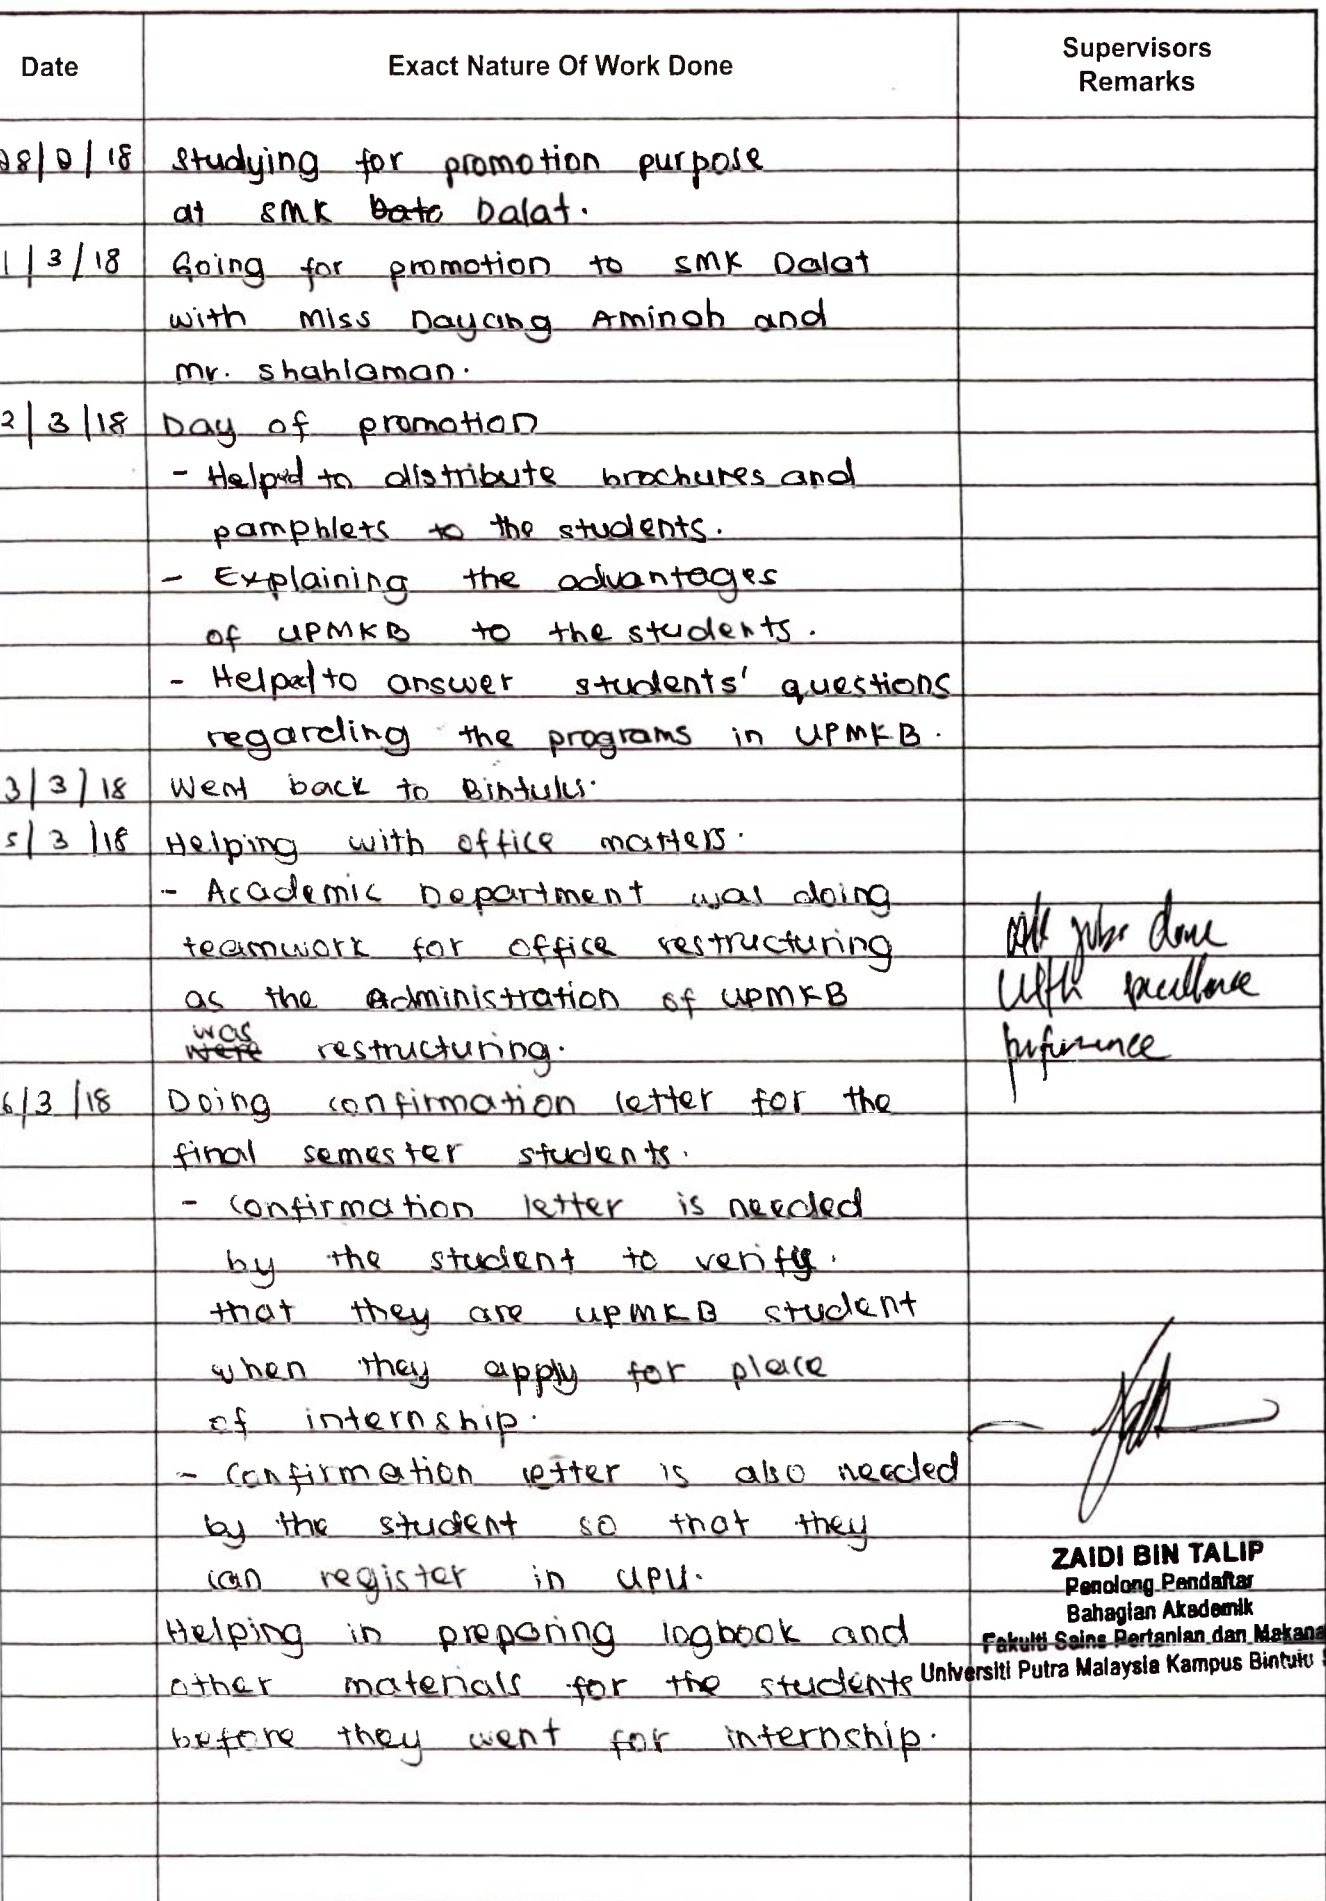 Date Exact Nature Of Work Done Supervisors Remarks
28/2/18 Studying for promotion purpose
at SMK Dalat.
1/3/18 Going for promotion to SMK Dalat
with Miss Dayang Aminah and
mr. Shahlaman.
2/3/18 Day of promotion
- Helped to distribute brochures and
pamphlets to the students.
- Explaining the advantages
of UPMKB to the students.
- Helped to answer students' questions
regarding the programs in UPMKB.
3/3/18 Went back to Bintulu.
5/3/18 Helping with office matters.
- Academic Department was doing
teamwork for office restructuring
as the Administration of UPMKB
was were restructuring.
All jobs done
with excellence
6/3/18 Doing confirmation letter for the
final semester students.
- Confirmation letter is needed
by the student to verify.
that they are UPMKB student
when they apply for place
of internship.
- Confirmation letter is also needed
by the student so that they
can register in UPU.
Helping in preparing logbook and
other materials for the students
before they went for internship.
ZAIDI BIN TALIP
Penolong Pendaftar
Bahagian Akademik
Fakulti Sains Pertanian dan Makana
Universiti Putra Malaysia Kampus Bintulu S